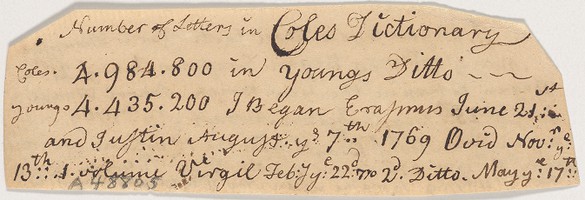 Number of Letters in Coles Dictionary
Coles. 4.984.800 in Youngs Ditto
youngs 4.435.200 I Began Erasmus June 21st
and Justin August ye 7th 1769 Ovid Novr ye
13th 1. volume Virgil Feb: ye 22d 70 2d. Ditto. May ye 17th
A 48805